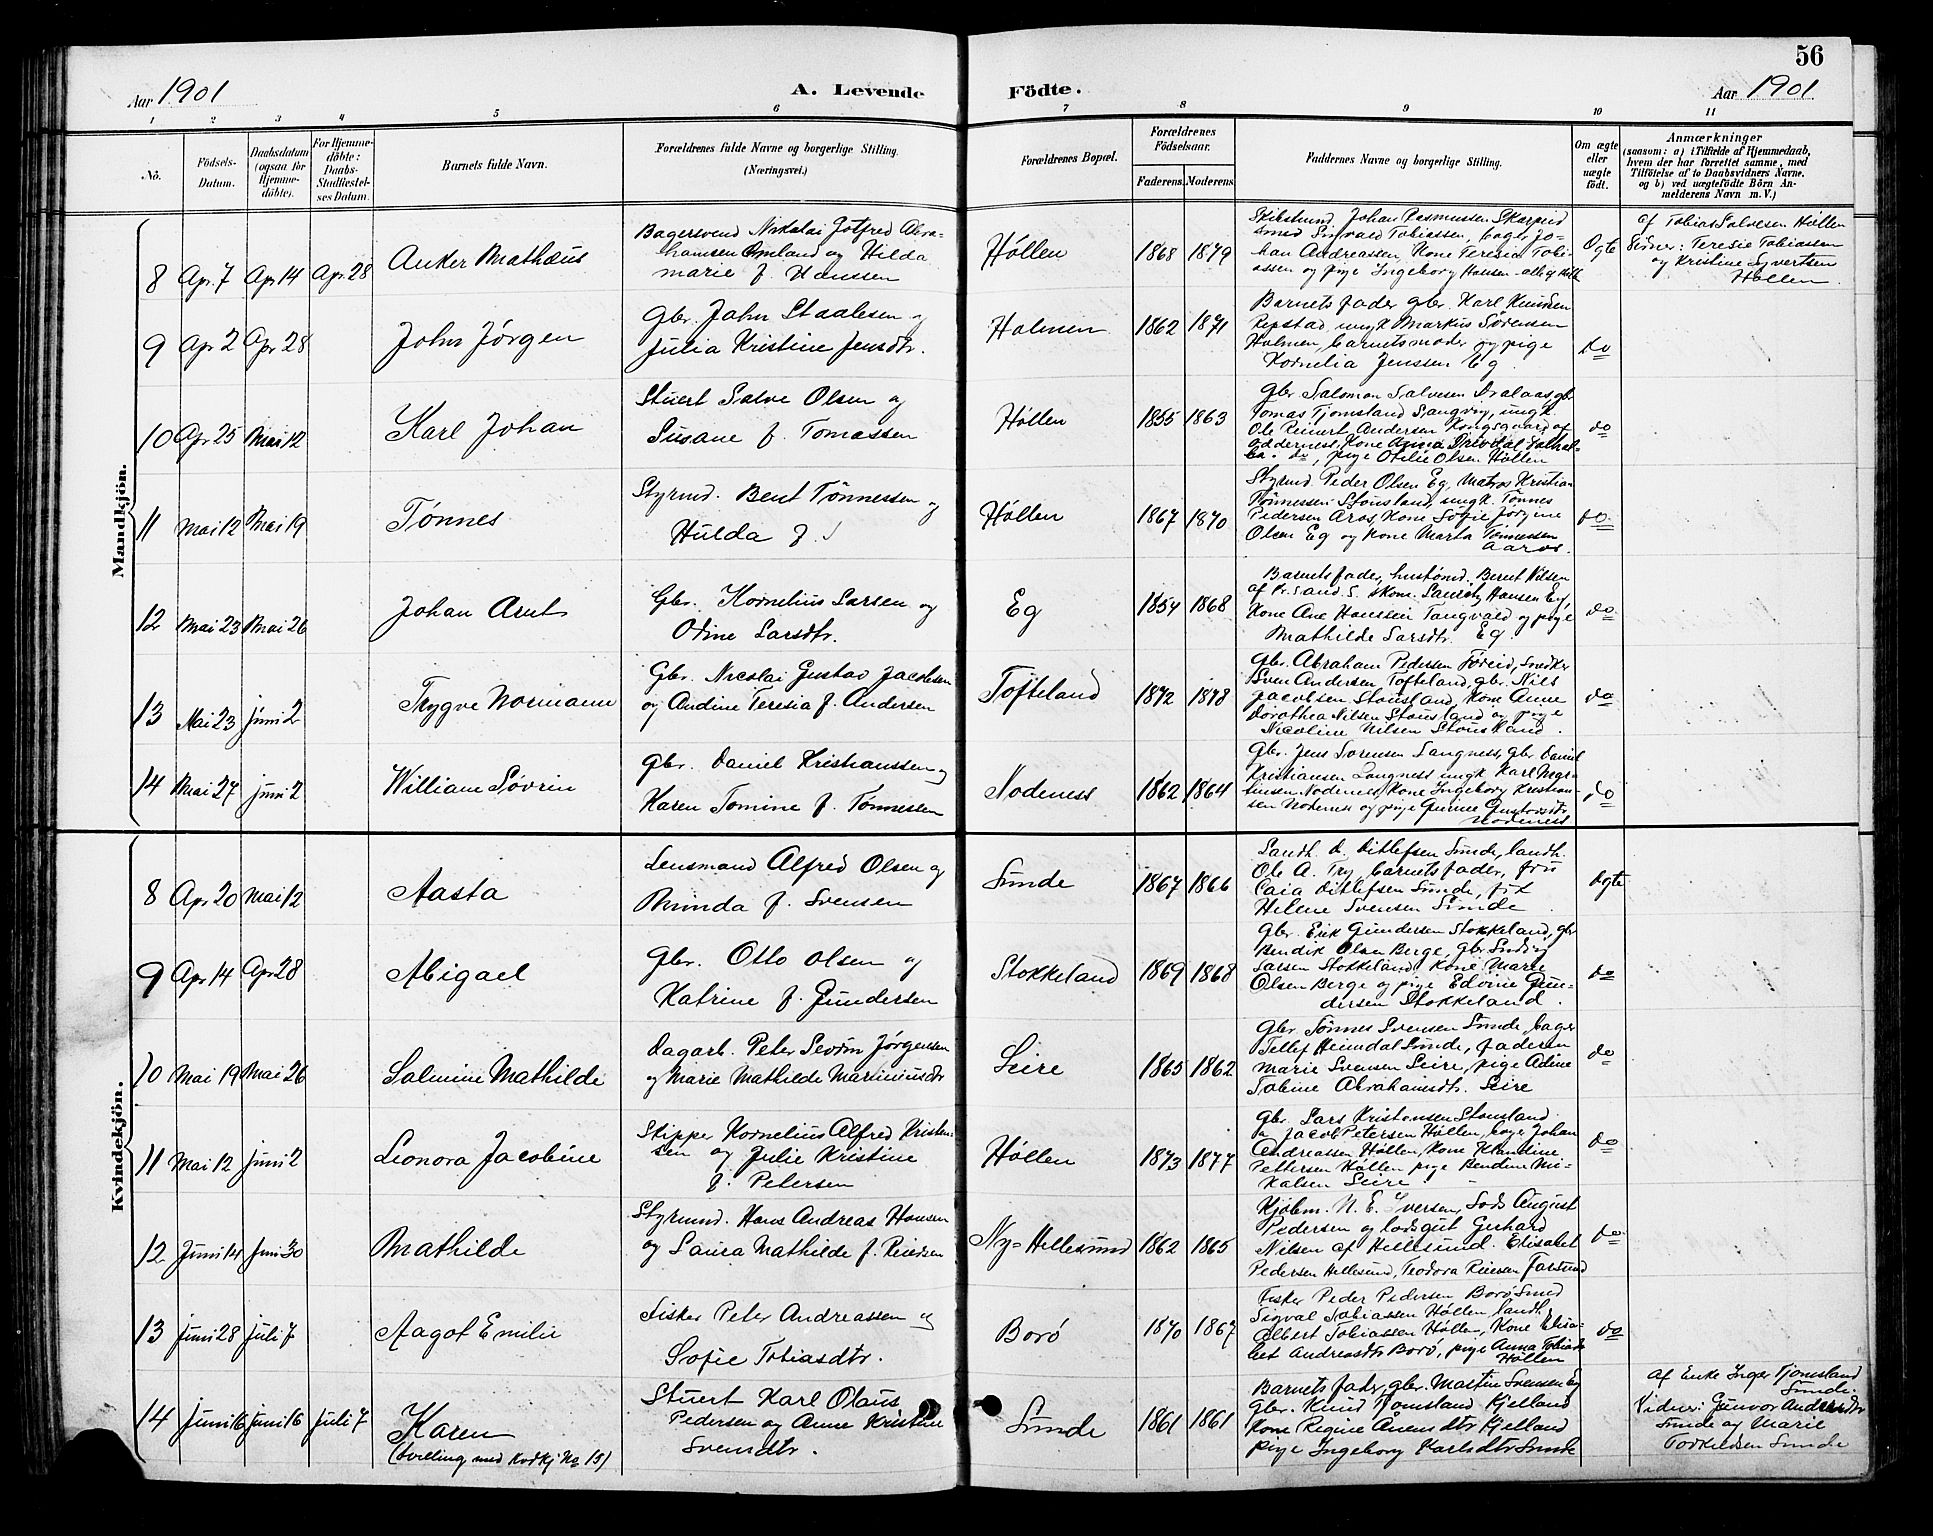 56
Aar 1901
A. Levende
Födte.
Aar 1901
1 2 3 4 5 6 7 8 9 10 11
No.
Födsels-
Datum.
Daabsdatum
(ogsaa for
Hjemme-
döbte).
For Hjemme-
döbte:
Daabs-
Stadfæstel-
ses Datum.
Barnets fulde Navn.
Forældrenes fulde Navne og borgerlige Stilling.
(Næringsvei.)
Forældrenes Bopæl.
Forældrenes
Födselsaar.
Faderens. Moderens.
Faddernes Navne og borgerlige Stilling.
Om ægte
eller
uægte
födt.
Anmærkninger
(saasom: a) i Tilfælde af Hjemmedaab,
hvem der har forrettet samme, med
Tilföielse af to Daabsvidners Navne.
og b) ved uægtefödte Börn An-
melderens Navn m. V.)
Mandkjön.
8 Apr. 7 Apr 14 Apr. 28
Anker Mathæus
Bagersvend Nikolai Jotfred Abra-
hamsen Omland og Hilda
Marie f. Hansen
Høllen
1868 1879
Skibstmd Johan Rasmussen Skarpeid
Smed Sigvald Tobiassen, bager Jo-
han Andreassen, Kone Teresia Tobi-
assen og pige Ingeborg Hansen - alle af Høll.
Ogte
af Tobias Salvesen Høllen
Vidner: Teresie Tobiassen
og Kristine Syvertsen
Høllen.
9 Apr 2 Apr 28
John Jørgen
Gbr. John Staalesen og
Julia Kristine Jensdtr.
Holmen
1862 1871
Barnets fader gbr. Karl Knudsen
Repstad, ungk Markus Sørensen
Holmen, barnets moder og pige
Kornelia Jenssen Eg
do
10 Apr 25 Mai 12
Karl Johan
Stuert Salve Olsen og
Susane f. Tomassen
Høllen
1855 1863
Gbr Salomon Salvesen Dralaas, gb.
Tomas Tjomsland Langvig, ungk.
Ole Reinert Andersen Kongsgaard af
Oddernes, Kone Anna
do, pige Otilie Olsen Høllen
do
11 Mai 12 Mai 19
Tønnes
Styrmd. Bent Tønnessen og
Hulda f.
Høllen
1867 1870
Styrmd Peder Olsen Eg, Matros Kristian
Tønnessen Stousland, ungk. Tønnes
Pedersen Aros, Kone Sofie Jørgine
Olsen Eg og Kone Marta Tønnessen
Aaros.
do.
12 Mai 23 Mai 26
Johan Arnt
Gbr. Kornelius Larsen og
Odine Larsdtr.
Eg
1854 1868
Barnets fader, hustømd. Bernt Nilsen
af Kr.sand S. skom. Lauritz Hansen Eg,
Kone Ane Hansen Tangvald og pige
Mathilde Larsdtr. Eg.
do.
13 Mai 23 Juni 2
Trygve Normann
Gbr. Nicolai Gustav Jacobsen
og Andine Teresia f. Andersen
Tofteland
1872 1878
Gbr. Abraham Pedersen Føreid, Snedker
Sven Andersen Tofteland, gbr. Nils
Jacobsen Stousland, Kone Anne
Dorothea Nilsen Stousland og pige
Nicoline Nilsen Stousland.
do
14 Mai 27 Juni 2
William Søvrin
Gbr. Daniel Kristianssen og
Karen Tomine f. Tønnessen
Nodeness
1862 1864
Gbr. Jens Sørensen Langness, gbr. Daniel
Kristiansen Langness ungk Karl
Nodeness, Kone Ingeborg Kristian-
sen Nodenes og pige Gurine Gustavsdtr
Nodeness
do
Kvindekjön.
8 Apr 20 Mai 12
Aasta
Lensmand Alfred Olsen og
Minda f. Svensen
Sunde
1867 1866
Landh. D. Ditlefsen Sunde, landh.
Ole A. Try, barnets fader, fru
Caia Ditlefsen Sunde, frk
Helene Svensen Sunde
ogte
9 Apr 14 Apr 28
Abigael
Gbr. Otto Olsen og
Katrine f. Gundersen
Stokkeland
1869 1868
Gbr. Erik Gundersen Stokkeland, gbr
Bendik Olsen Berge, gbr Ludvig
Larsen Stokkeland, Kone Marie
Olsen Berge og pige Edvine Gun-
dersen Stokkeland.
do
10 Mai 19 Mai 26
Salmine Mathilde
Dagarb. Peter Sevrin Jørgensen
og Marie Mathilde Mariniusdtr
Leire
1865 1862
Gbr Tønnes Svensen Sunde, bager
Tellef Heimdal Sunde, faderen
Marie Svensen Leire, pige Adine
Tobine Abrahamsdtr. Leire
do
11 Mai 12 Juni 2
Leonora Jacobine
Skipper Kornelius Alfred Kristen-
sen og Julie Kristine
f. Petersen
Høllen
1873 1877
Gbr. Lars Kristensen Stousland
Jacob Petersen Høllen, bager Johan
Andreassen Høllen, Kone Klandine
Pettersen Høllen pige Bendine Mi-
kalsen Leire
do
12 Juni 14 Juni 30
Mathilde
Styrmd. Hans Andreas Hansen
og Laura Mathilde f. Reiersen
Ny-Hellesund
1862 1865
Kjøbm. N. E. Iversen, Lods August
Pedersen og lodsgut Gerhard
Nilsen af Hellesund. Elisabet
Pedersen Hellesund, Teodora Reiersen Farsund
do
13 Juni 28 Juli 7
Aagot Emilie
Fisker Peter Andreassen og
Sofie Tobiasdtr.
Borø
1870 1867
Fisker Peder Pedersen Borø Smed
Sigval Tobiassen Høllen landh.
Albert Tobiassen Høllen, Kone Elisa-
bet Andreasdtr Borø, pige Anna Tobiasdtr
Høllen
do
14 Juni 16 Juni 16 Juli 7
Karen
(tvilling med Kvdkj No 15)
Stuert Karl Olaus
Pedersen og Anne Kristine
Svendtr.
Sunde
1861 1861
Barnets fader, gbr. Martin Svensen Eg
Gbr. Knud Tjomsland Kjelland
Kone Regine Anensdtr Kjelland
pige Ingeborg Karlsdtr Sunde
af Enke Inger Tjomsland
Sunde.
Vidner: Gunvor Andersdtr
Sunde og Marie
Torkildsen Sunde